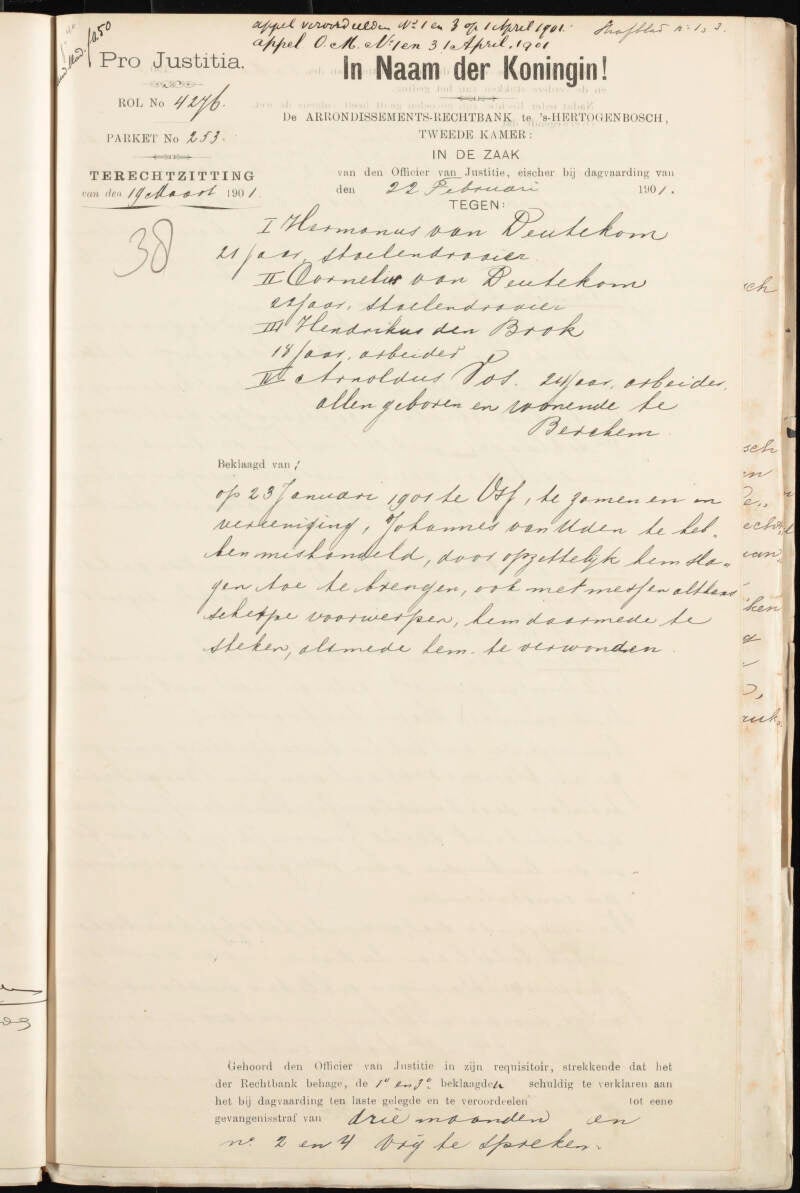 appel veroordeelden No 1 en 3 op 1 April 1901.
appel O.M. No 1 en 3 1 April. 1901
Strafblad no 1, 3.
Pro Justitia.
In Naam der Koningin!
ROL No 4276.
De ARRONDISSEMENTS-RECHTBANK te 's-HERTOGENBOSCH,
TWEEDE KAMER:
PARKET No 253.
IN DE ZAAK
TERECHTZITTING
van den Officier van Justitie, eischer bij dagvaarding van
van den 19 Maart 1901.
den 22 Februari 1901.
TEGEN:
38
I Hermanus van Deutekom
21 jaar, stoelendraaier
II Cornelis van Deutekom
22 jaar, stoelendraaier
III Hendrikus den Brok
18 jaar, arbeider
IV Arnoldus Vos. 24 jaar, arbeider,
allen geboren en wonende te
Berchem
Beklaagd van:
op 23 Januari 1901 te Osf, te zamen en in
vereeniging, Johannes van Uden te heb-
ben mishandeld, door opzettelijk hem sla-
gen toe te brengen, ook met messen althans
scherpe voorwerpen, hem daarmede te
steken, alsmede hem te verwonden.
Gehoord den Officier van Justitie in zijn requisitoir, strekkende dat het
der Rechtbank behage, de 1e en 3e beklaagden schuldig te verklaren aan
het bij dagvaarding ten laste gelegde en te veroordeelen tot eene
gevangenisstraf van drie maanden en
no 2 en 4 vrij te spreken.